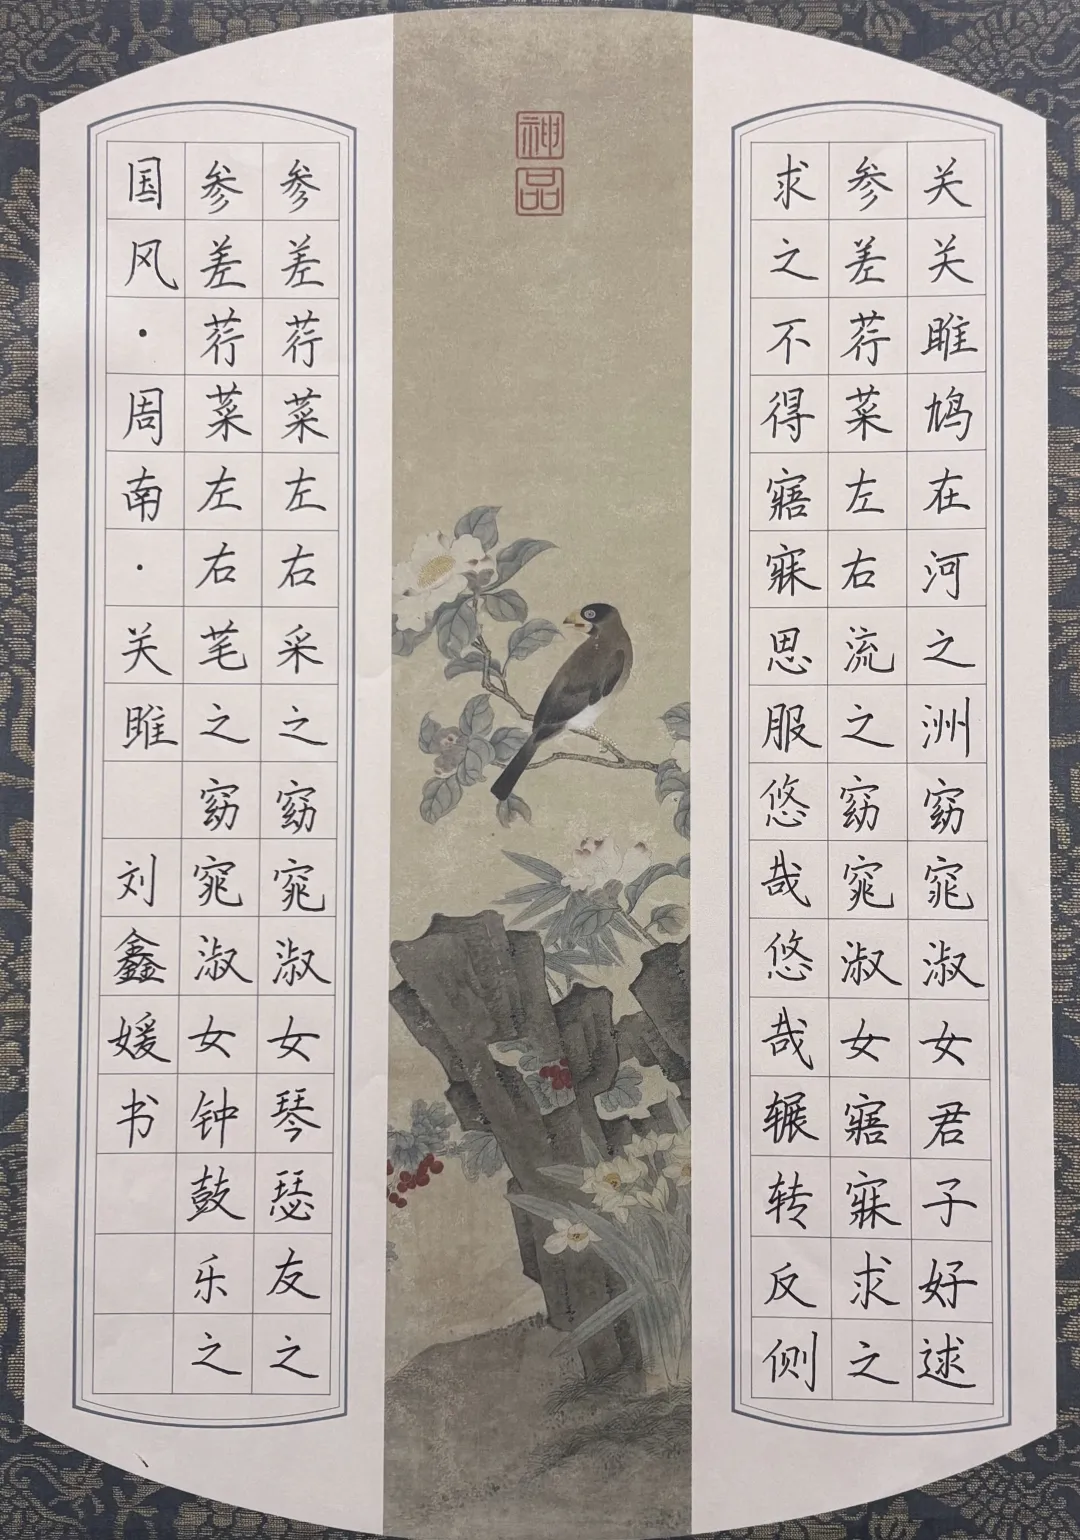 关关雎鸠在河之洲窈窕淑女君子好逑
参差荇菜左右流之窈窕淑女寤寐求之
求之不得寤寐思服悠哉悠哉辗转反侧
神品
参差荇菜左右采之窈窕淑女琴瑟友之
参差荇菜左右芼之窈窕淑女钟鼓乐之
国风·周南·关雎 刘鑫媛书